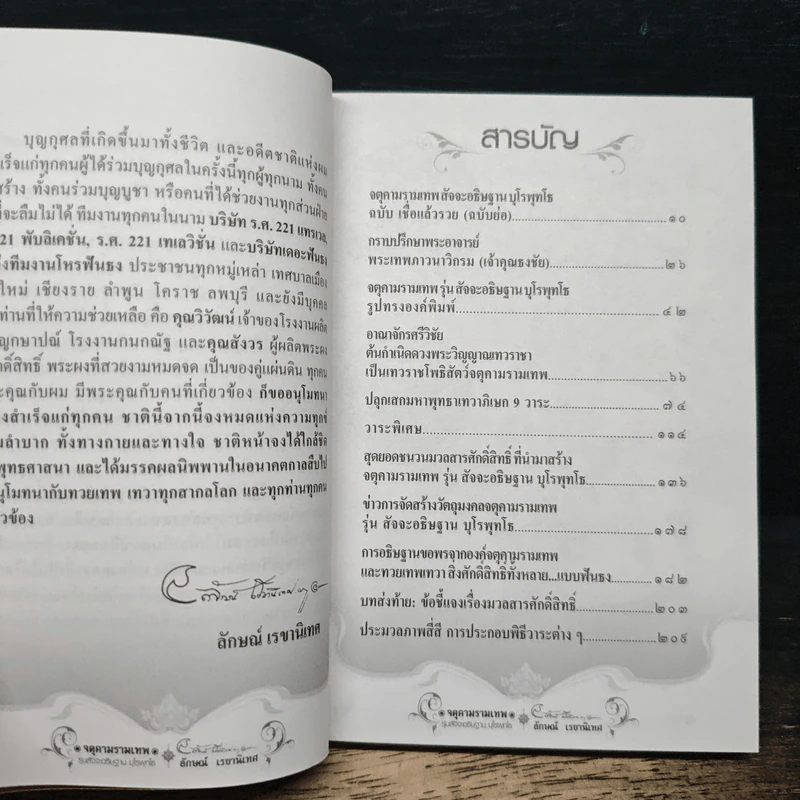 บุญกุศลที่เกิดขึ้นมาทั้งชีวิต และอดีตชาติแห่งผม
เร็จแก่ทุกคนผู้ได้ร่วมบุญกุศลในครั้งนี้ทุกผู้ทุกนาม ทั้งคน
สร้าง ทั้งคนร่วมบุญบูชา หรือคนที่ได้ช่วยงานทุกส่วนฝ่าย
ที่จะลืมไม่ได้ ทีมงานทุกคนในนาม บริษัท ร.ศ. 221 แทรเวล,
21 พับลิเคชั่น, ร.ศ. 221 เทเลวิชั่น และบริษัทเดอะฟันธง
ทีมงานโหรฟันธง ประชาชนทุกหมู่เหล่า เทศบาลเมือง
ใหม่ เชียงราย ลำพูน โคราช ลพบุรี และยังมีบุคคล
ท่านที่ให้ความช่วยเหลือ คือ คุณวิวัฒน์ เจ้าของโรงงานผลิต
ญกษาปณ์ โรงงานกนกณัฐ และคุณสังวร ผู้ผลิตพระผง
ดิ์สิทธิ์ พระผงที่สวยงามหมดจด เป็นของคู่แผ่นดิน ทุกคน
ะคุณกับผม มีพระคุณกับคนที่เกี่ยวข้อง ก็ขออนุโมทนา
งสำเร็จแก่ทุกคน ชาตินี้จากนี้จงหมดแห่งความทุกข์
มลำบาก ทั้งทางกายและทางใจ ชาติหน้าจงได้ใกล้ชิด
พุทธศาสนา และได้มรรคผลนิพพานในอนาคตกาลสืบไป
นุโมทนากับทวยเทพ เทวาทุกสากลโลก และทุกท่านทุกคน
วข้อง
ลักษณ์ เรขานิเทศ
จตุคามรามเทพ
รุ่นสัจจะอธิษฐาน บุโรพุทโธ
ลักษณ์ เรขานิเทศ
สารบัญ
จตุคามรามเทพ สัจจะอธิษฐาน บุโรพุทโธ
ฉบับ เชื่อแล้วรวย (ฉบับย่อ)......๑๐
กราบปรึกษาพระอาจารย์
พระเทพภาวนาวิกรม (เจ้าคุณธงชัย)......๒๖
จตุคามรามเทพ รุ่น สัจจะอธิษฐาน บุโรพุทโธ
รูปทรงองค์พิมพ์......๔๒
อาณาจักรศรีวิชัย
ต้นกำเนิดดวงพระวิญญาณเทวราชา
เป็นเทวราชโพธิสัตว์จตุคามรามเทพ......๖๖
ปลุกเสกมหาพุทธาเทวาภิเษก 9 วาระ......๗๔
วาระพิเศษ......๑๑๔
สุดยอดชนวนมวลสารศักดิ์สิทธิ์ ที่นำมาสร้าง
จตุคามรามเทพ รุ่น สัจจะอธิษฐาน บุโรพุทโธ......๑๓๖
ข่าวการจัดสร้างวัตถุมงคลจตุคามรามเทพ
รุ่น สัจจะอธิษฐาน บุโรพุทโธ......๑๗๘
การอธิษฐานขอพรจากองค์จตุคามรามเทพ
และทวยเทพเทวา สิ่งศักดิ์สิทธิ์ทั้งหลาย...แบบฟันธง......๑๘๒
บทส่งท้าย: ข้อชี้แจงเรื่องมวลสารศักดิ์สิทธิ์......๒๐๓
ประมวลภาพสี่สี การประกอบพิธีวาระต่าง ๆ......๒๐๙
จตุคามรามเทพ
รุ่นสัจจะอธิษฐาน บุโรพุทโธ
ลักษณ์ เรขานิเทศ